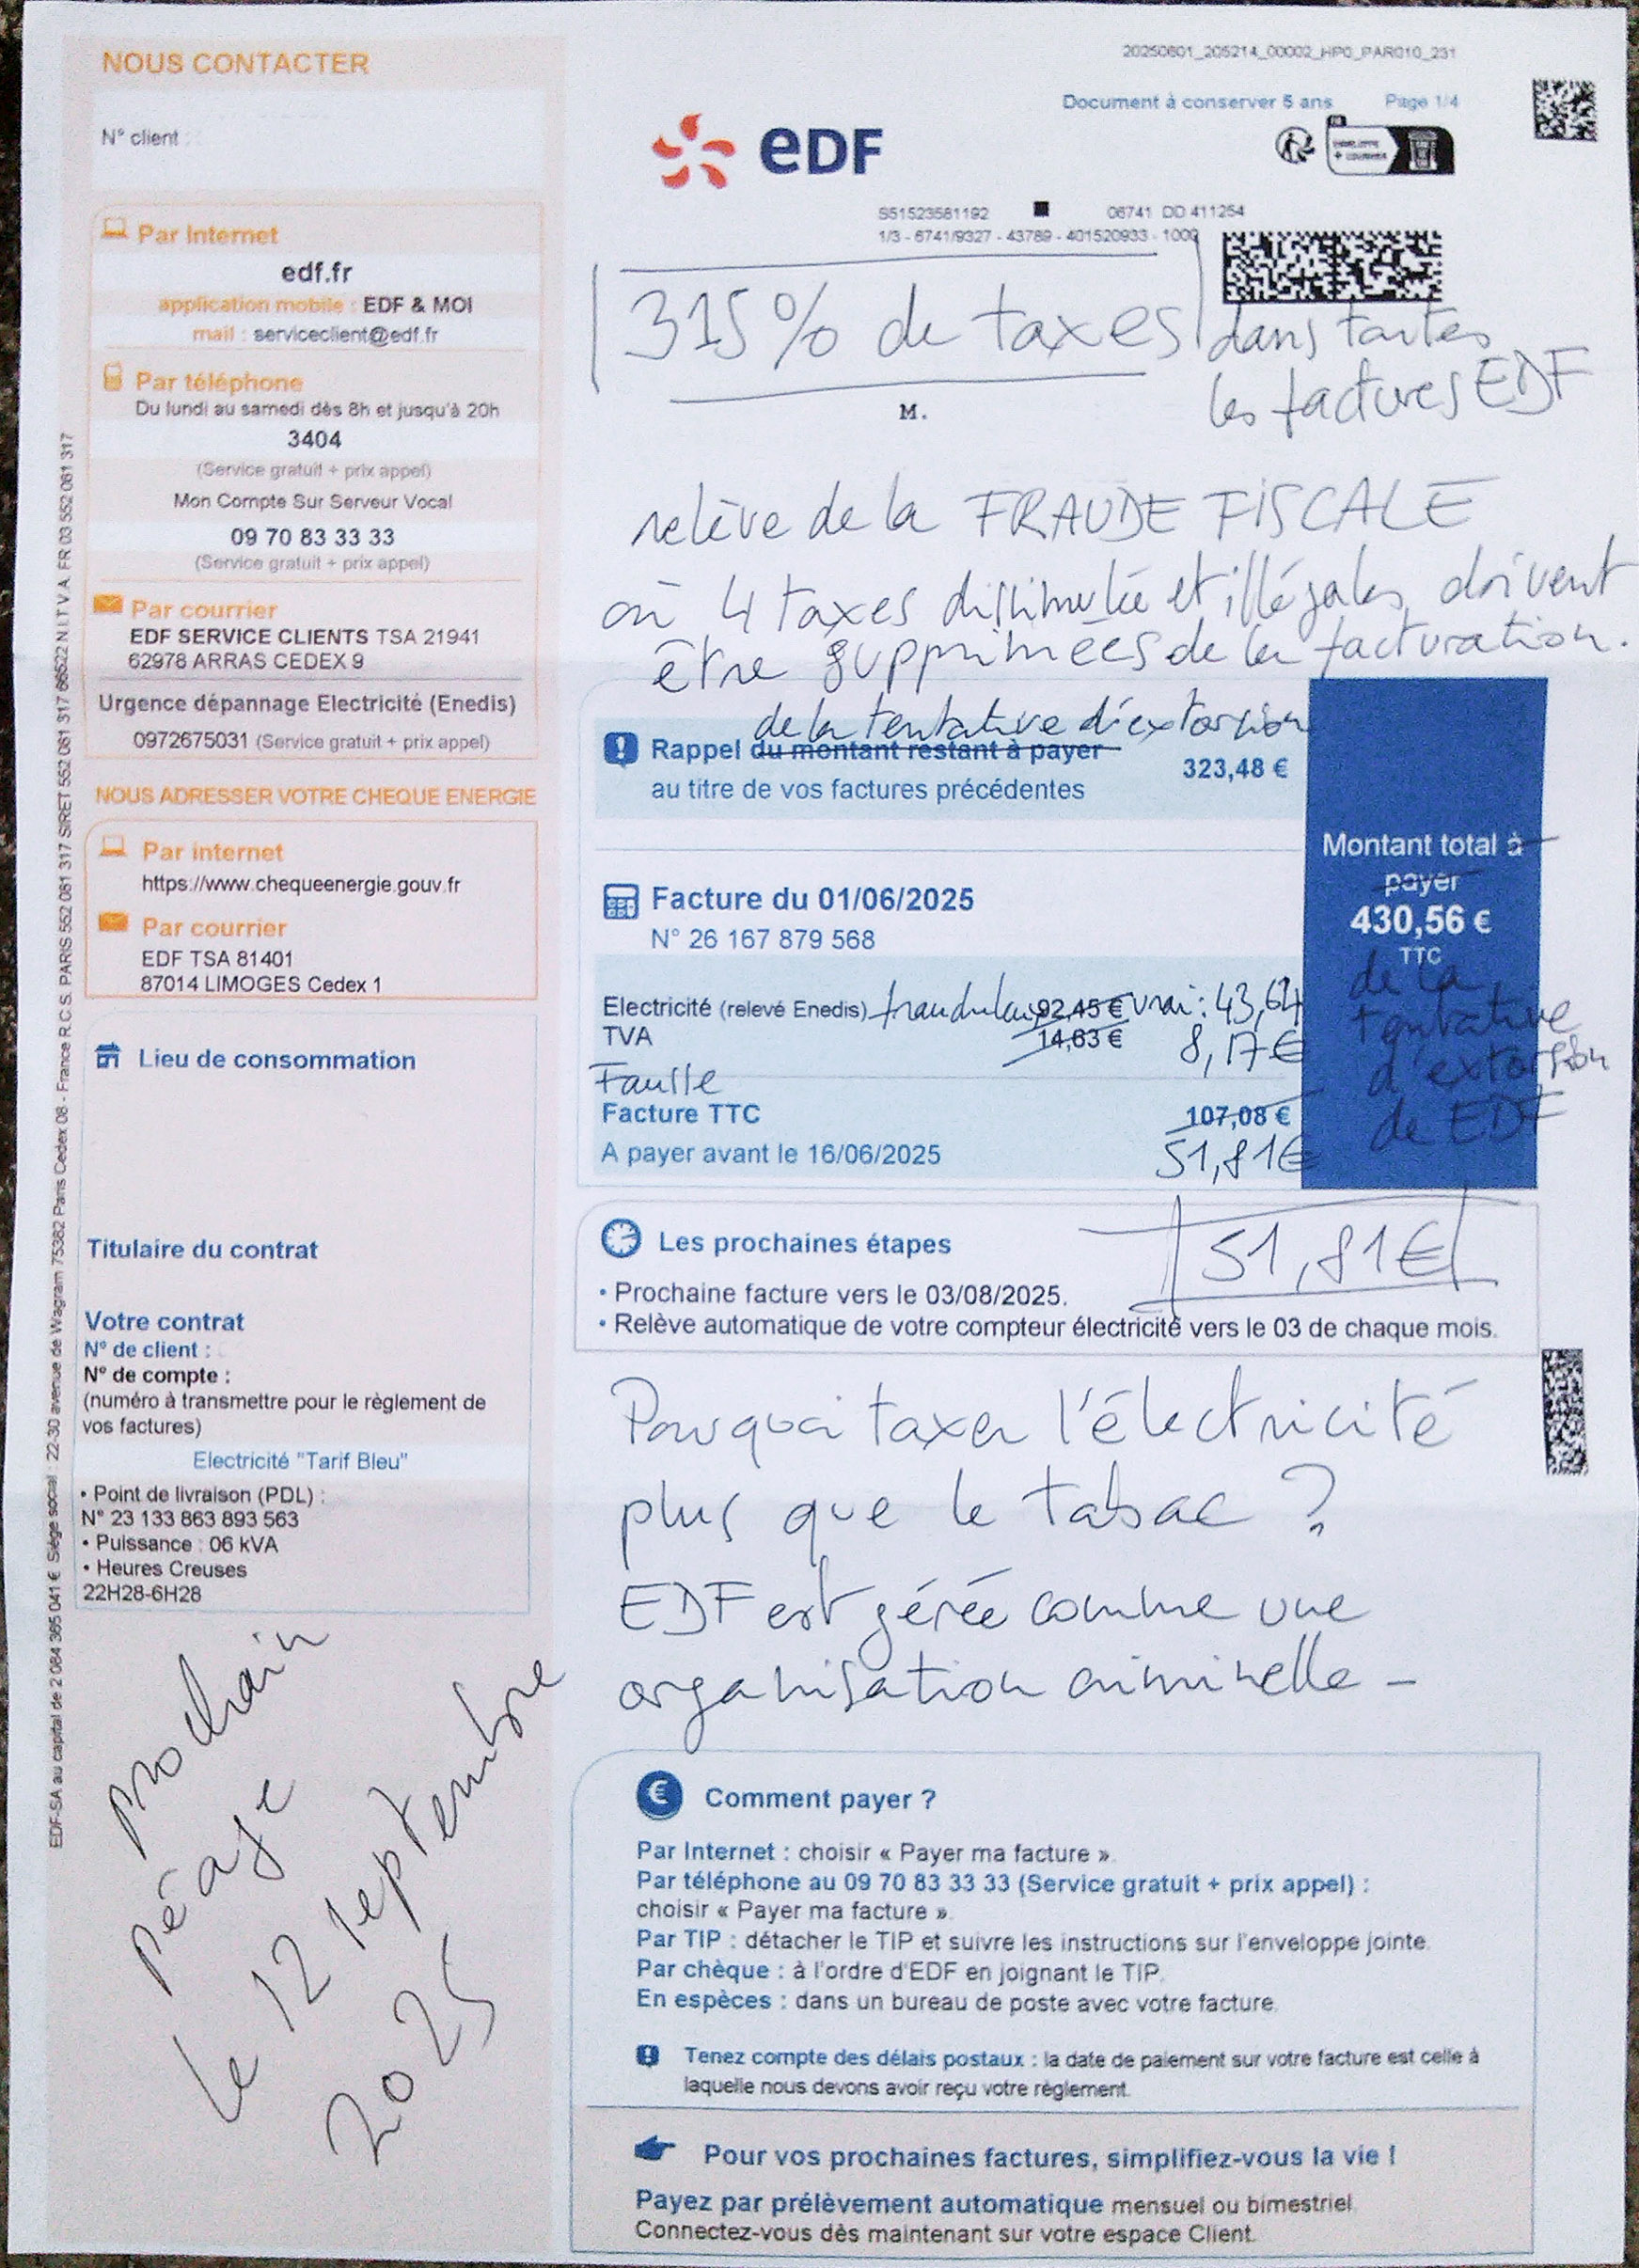 NOUS CONTACTER
N° client :
Par Internet
edf.fr
application mobile : EDF & MOI
mail : serviceclient@edf.fr
Par téléphone
Du lundi au samedi dès 8h et jusqu'à 20h
3404
(Service gratuit + prix appel)
Mon Compte Sur Serveur Vocal
09 70 83 33 33
(Service gratuit + prix appel)
Par courrier
EDF SERVICE CLIENTS TSA 21941
62978 ARRAS CEDEX 9
Urgence dépannage Electricité (Enedis)
0972675031 (Service gratuit + prix appel)
NOUS ADRESSER VOTRE CHEQUE ENERGIE
Par internet
https://www.chequeenergie.gouv.fr
Par courrier
EDF TSA 81401
87014 LIMOGES Cedex 1
Lieu de consommation
Titulaire du contrat
Votre contrat
N° de client :
N° de compte :
(numéro à transmettre pour le règlement de
vos factures)
Electricité "Tarif Bleu"
• Point de livraison (PDL) :
N° 23 133 863 893 563
• Puissance : 06 kVA
• Heures Creuses
22H28-6H28
prochain
péage
le 12 septembre
2025
EDF-SA au capital de 2 084 365 041 € Siège social : 22-30 avenue de Wagram 75382 Paris Cedex 08 - France R.C.S. PARIS 552 081 317 SIRET 552 081 317 66522 N.I T.V.A. FR 03 552 081 317
20250601_205214_00002_HP0_PAR010_231
Document à conserver 5 ans Page 1/4
eDF
S51523581192 06741 DD 411254
1/3 - 6741/9327 - 43789 - 401520933 - 1000
315% de taxes dans toutes
les factures EDF
M.
relève de la FRAUDE FISCALE
où 4 taxes dissimulée et illégales doivent
être supprimées de la facturation.
de la tentative d'extorsion
Rappel du montant restant à payer
323,48 €
au titre de vos factures précédentes
Montant total à
payer
430,56 €
TTC
de la
tentative
d'extorsion
de EDF
Facture du 01/06/2025
N° 26 167 879 568
Electricité (relevé Enedis) 92,45 € vrai : 43,64
TVA 14,63 € 8,17€
Fausse
Facture TTC 107,08 €
A payer avant le 16/06/2025 51,81€
Les prochaines étapes 51,81€
• Prochaine facture vers le 03/08/2025.
• Relève automatique de votre compteur électricité vers le 03 de chaque mois.
Pourquoi taxer l'électricité
plus que le tabac ?
EDF est gérée comme une
organisation criminelle -
Comment payer ?
Par Internet : choisir « Payer ma facture ».
Par téléphone au 09 70 83 33 33 (Service gratuit + prix appel) :
choisir « Payer ma facture ».
Par TIP : détacher le TIP et suivre les instructions sur l'enveloppe jointe.
Par chèque : à l'ordre d'EDF en joignant le TIP.
En espèces : dans un bureau de poste avec votre facture.
Tenez compte des délais postaux : la date de paiement sur votre facture est celle à
laquelle nous devons avoir reçu votre règlement.
Pour vos prochaines factures, simplifiez-vous la vie !
Payez par prélèvement automatique mensuel ou bimestriel.
Connectez-vous dès maintenant sur votre espace Client.